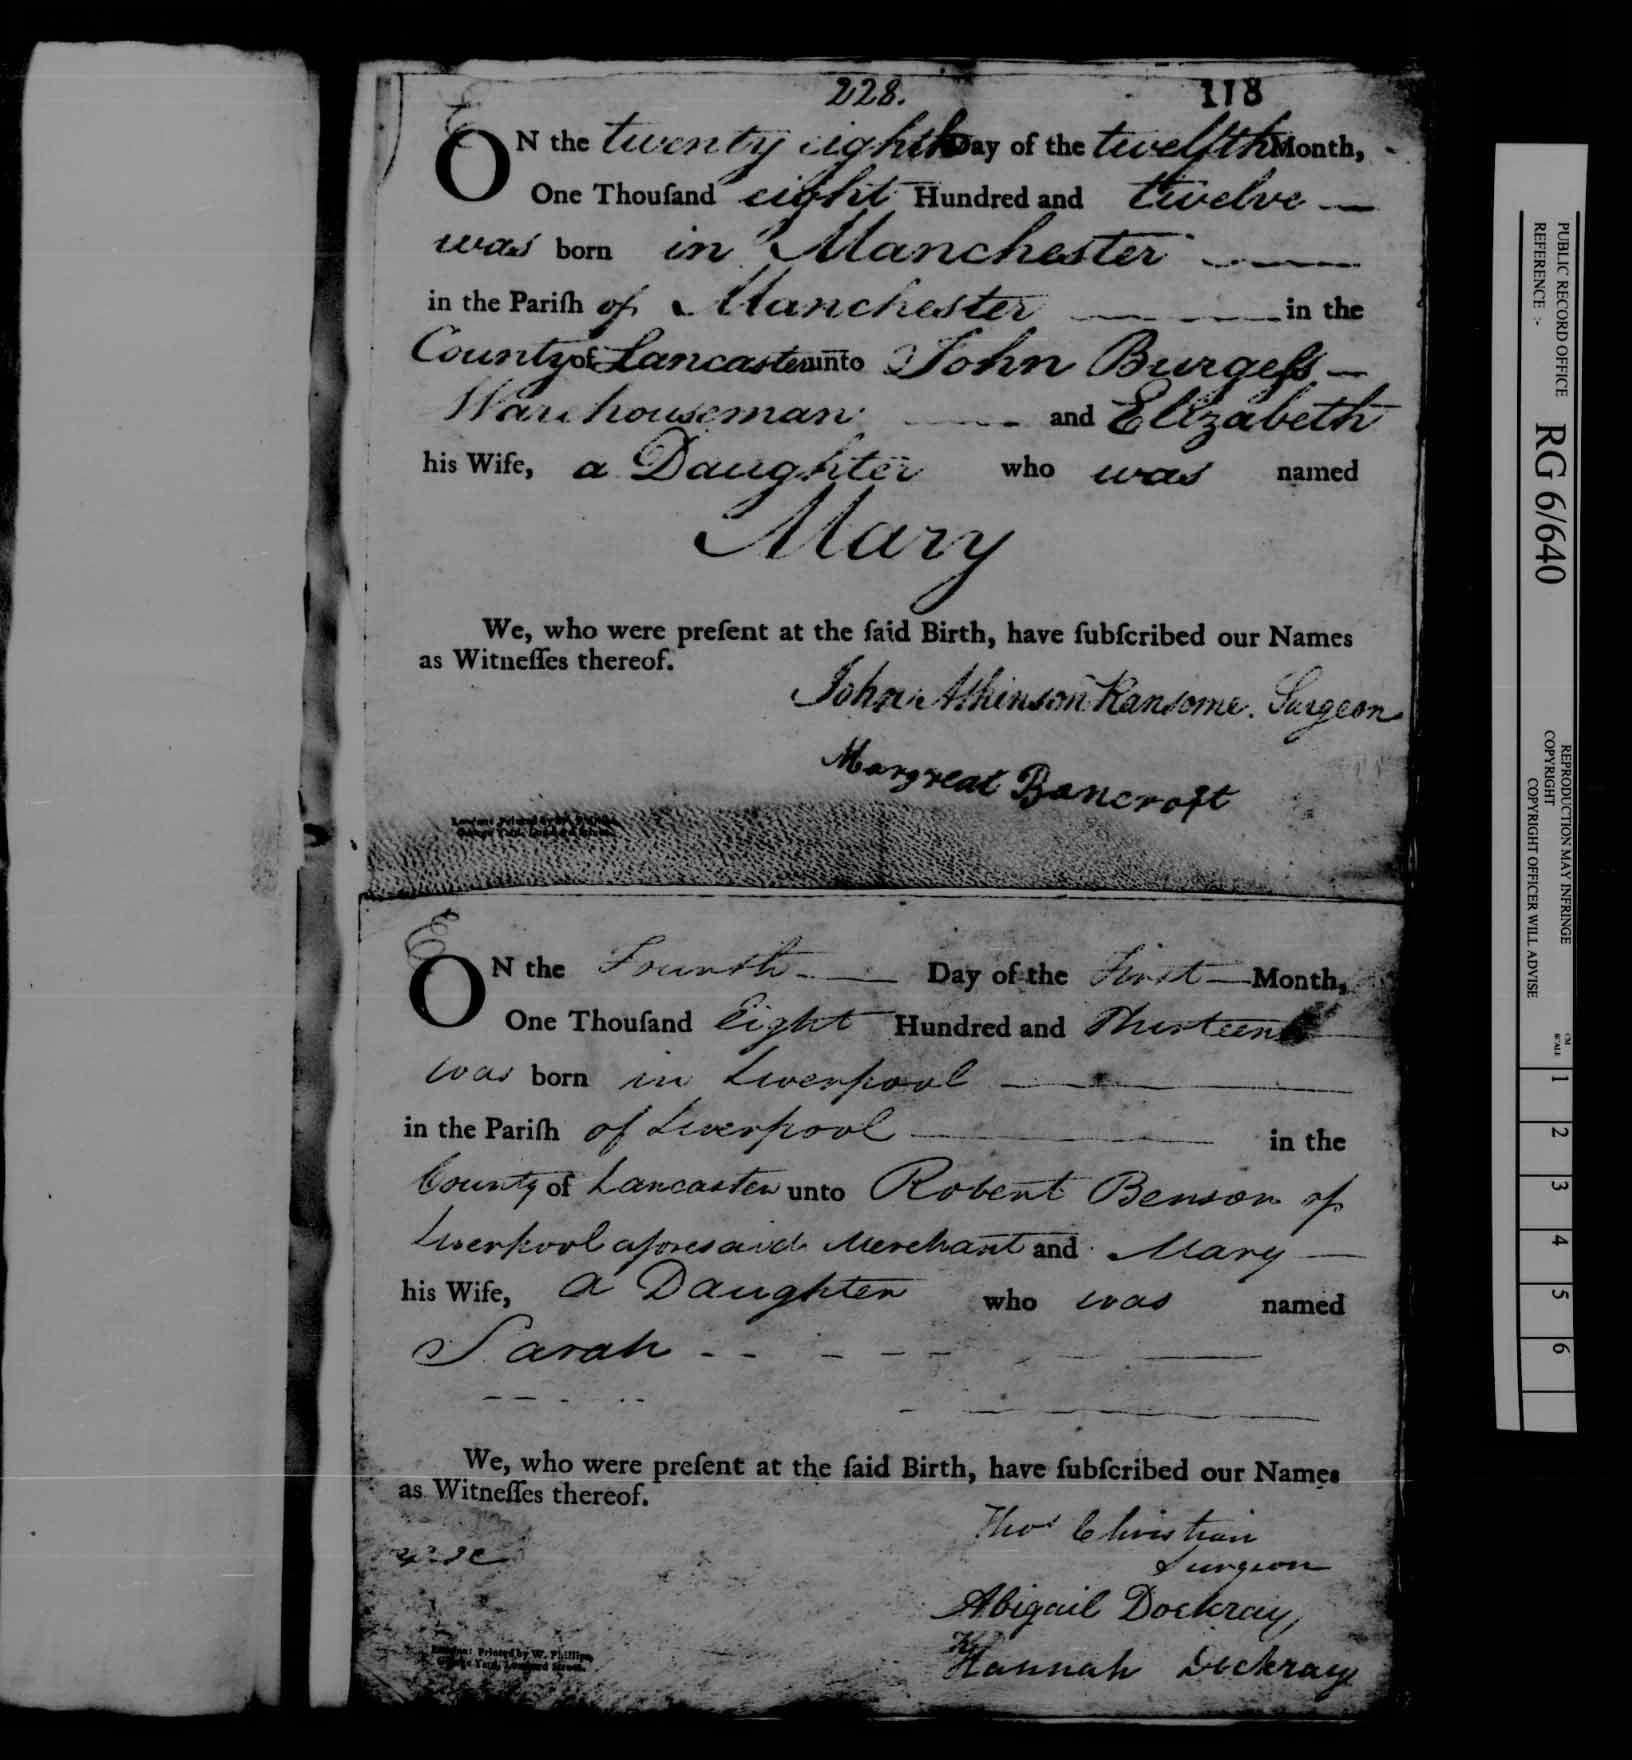 228. 118
ON the twenty eighth Day of the twelfth Month,
One Thouſand eight Hundred and twelve
was born in Manchester
in the Pariſh of Manchester in the
County of Lancaster unto John Burgeſs
Warehouseman and Elizabeth
his Wife, a Daughter who was named
Mary
We, who were preſent at the ſaid Birth, have ſubſcribed our Names
as Witneſſes thereof.
John Atkinson Ransome. Surgeon
Margreat Bancroft
London: Printed by W. Phillips,
George Yard, Lombard Street.
ON the Fourth Day of the First Month,
One Thouſand Eight Hundred and Thirteen
was born in Liverpool
in the Pariſh of Liverpool in the
County of Lancaster unto Robert Benson of
Liverpool aforesaid Merchant and Mary
his Wife, a Daughter who was named
Sarah
We, who were preſent at the ſaid Birth, have ſubſcribed our Names
as Witneſſes thereof.
Thos Christian
Surgeon
Abigail Dockray,
Hannah Dockray
London: Printed by W. Phillips,
George Yard, Lombard Street.
PUBLIC RECORD OFFICE
REFERENCE :-
RG 6/640
REPRODUCTION MAY INFRINGE
COPYRIGHT
COPYRIGHT OFFICER WILL ADVISE
CM
SCALE
1 2 3 4 5 6